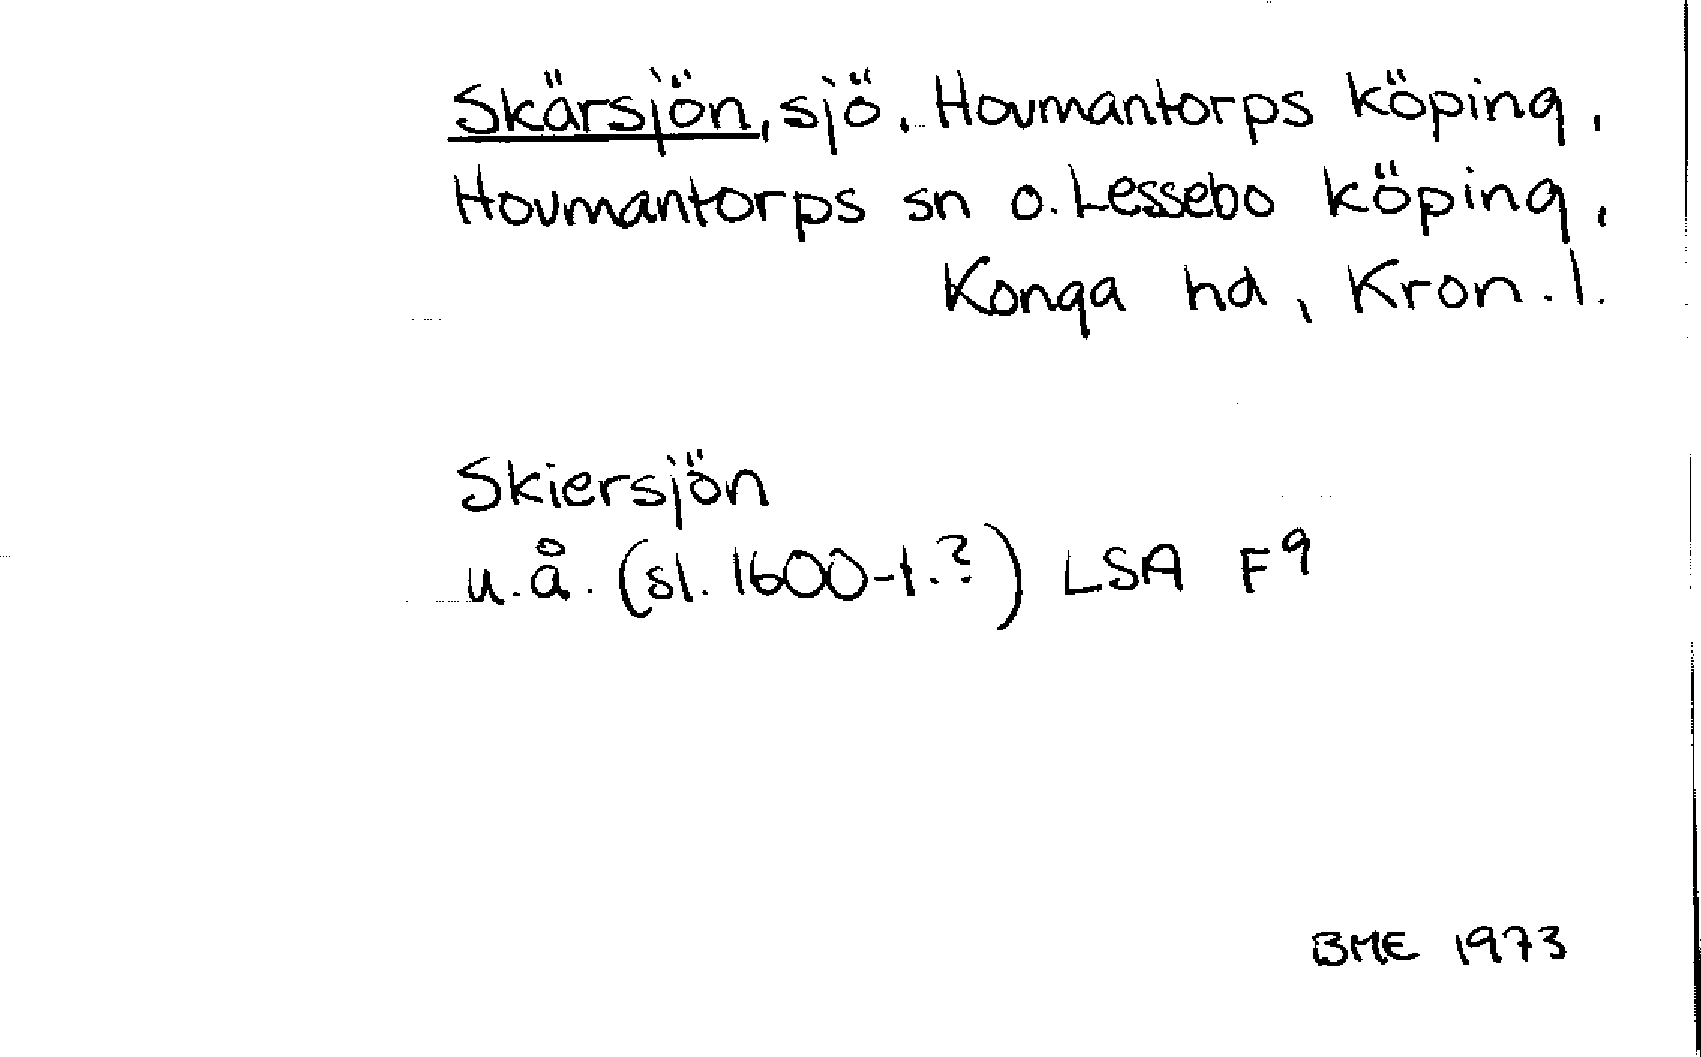 Skärsjön, sjö, Hovmantorps köping,
Hovmantorps sn o. Lessebo köping,
Konga hd, Kron. l.
Skiersjön
u.å. (sl. 1600-t.?) LSA F9
BME 1973